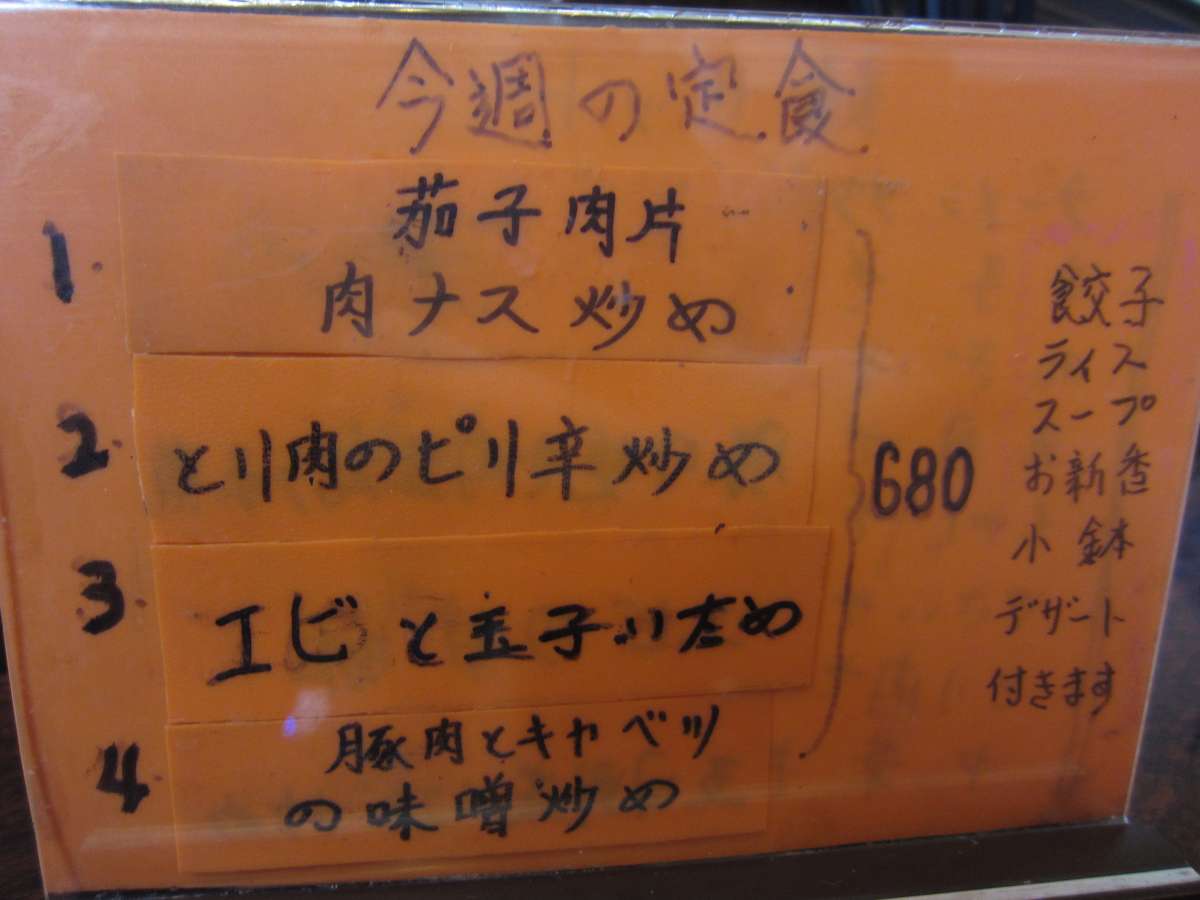 今週の定食
1.
茄子肉片
肉ナス炒め
2.
とり肉のピリ辛炒め
3.
エビと玉子いため
4.
豚肉とキャベツ
の味噌炒め
680
餃子
ライス
スープ
お新香
小鉢
デザート
付きます